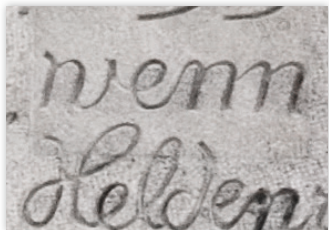 wenn
Helden